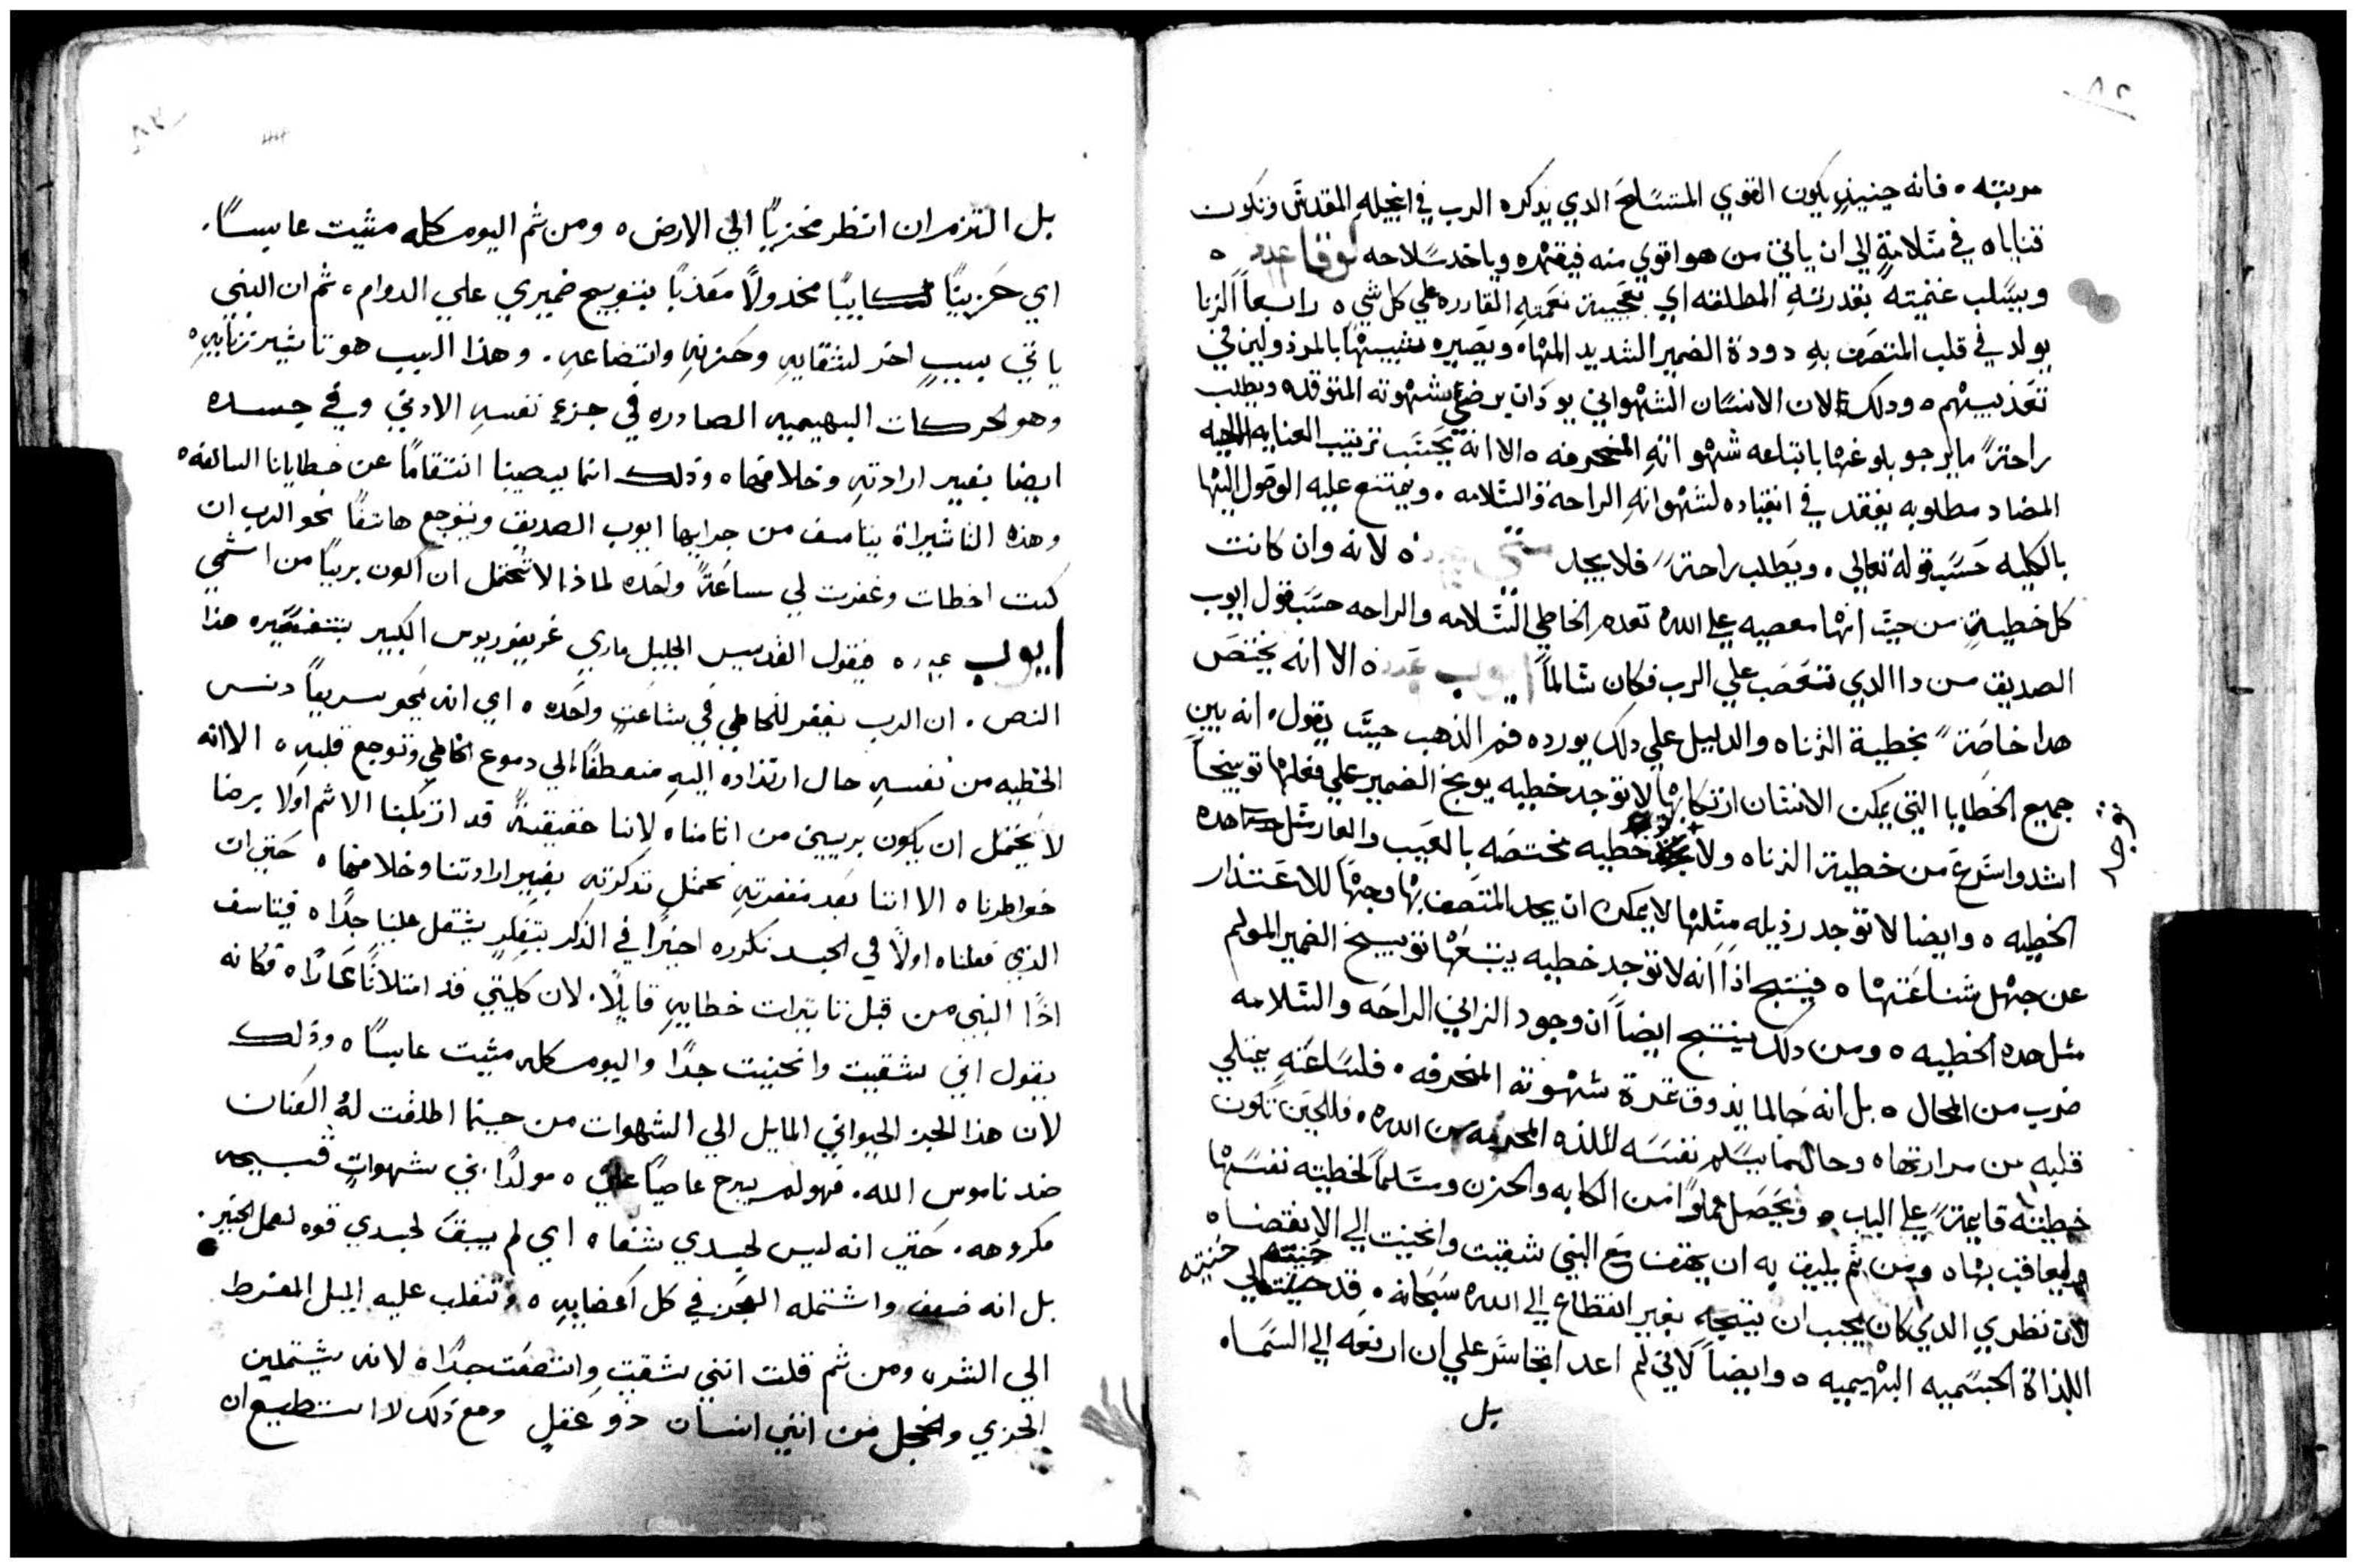 مربيته ٥ فانه حينيذٍ يكون القوي المتسلح الدي يذكره الرب في انجيله المقدس وتكون
قناياه في سلامةٍ الي ان ياتي من هو اقوي منه فيقهره وياخد سلاحه لوقا
ويسلب غنيمته بقدرته المطلقه اي بعجيبة نعمته القادره علي كل شي ٥ رابعاً الزنا
يولد في قلب المتصف به دودة الضمير الشديد المها٥ ويصيره شبيهًا بالمرذولين في
تعذيبهم ٥ ودلك لان الانسان الشهواني يود ان يرضي شهوته المتوقده ويطلب
راحةً ما يرجو بلوغها باتباعه شهواته المنحرفه ٥ الا انه يجتنب ترتيب العنايه الالهيه
المضاد مطلوبه يفقد في انقياده لشهواته الراحة والسلامه ٠ ويمتنع عليه الوصول اليها
بالكليه حسب قوله تعالي ٠ ويطلب راحةً فلا يجد ٥ لانه وان كانت
كل خطيةٍ من حيث انها معصيه علي الله تعدم الخاطي السلامه والراحه حسب قول ايوب
الصديق من دا الدي تعصب علي الرب فكان سالماً ايوب ٥ الا انه يختص
هدا خاصةً بخطية الزناه والدليل علي دلك يورده فم الذهب حيث يقول ٠ انه بين
جميع الخطايا التي يمكن الانسان ارتكابها لا توجد خطيه يوبخ الضمير علي فعلها توبيخاً
اشد واسرع من خطية الزناه ولا توجد خطيه مختصه بالعيب والعار مثل هده
توجد
الخطيه ٥ وايضا لا توجد رذيله مثلها لا يمكن ان يجد المتصف بها وجهًا للاعتذار
عن جهل شناعتها ٥ فينتج اذاً انه لا توجد خطيه يتبعها توبيخ الضمير المولم
مثل هده الخطيه ٥ ومن دلك ينتج ايضاً ان وجود الزاني الراحه والسلامه
ضرب من المحال ٥ بل انه حالما يذوق ثمرة شهوته المنحرفه ٠ فلساعته يمتلي
قلبه من مرارتها٥ وحالما يسلم نفسه للذه المحرمه من الله ٠ فللحين تكون
خطيته قايمةً علي الباب ٥ ويحصل مملواً من الكابه والحزن ومسلماً لخطيته نفسها
ليعاقب بها ٥ ومن ثم يليق به ان يهتف مع النبي شقيت وانحنيت الي الانقضا ٥
لان نظري الدي كان يجب ان يتجه بغير انقطاع الي الله سبحانه ٠ قد حنيته الي
حنيته
اللذاة الجسميه البهيميه ٥ وايضاً لاني لم اعد اتجاسر علي ان ارفعه الي السما ٥
بل
بل التزم ان انظر مخزياً الي الارض ٥ ومن ثم اليوم كله مشيت عابسًا ٠
اي حزينًا كايبًا مخدولاً معذبًا بتوبيخ ضميري علي الدوام ٥ ثم ان النبي
ياتي بسببٍ اخر لشقايه وحزنه واتضاعه ٠ وهذا السبب هو تاثير زنايه ٥
وهو الحركات البهيميه الصادره في جزء نفسه الادني وفي جسده
ايضا بغير ارادته وخلافها ٥ وذلك انما يصيبنا انتقامًا عن خطايانا السالفه ٥
وهذه التاثيراة يتاسف من جرايها ايوب الصديق ويتوجع هاتفًا نحو الرب ان
كنت اخطات وغفرت لي ساعةً واحده لماذا لا تحتمل ان اكون بريًا من اثمي
ايوب فيقول القديس الجليل ماري غريغوريوس الكبير بتفسيره هذا
النص ٠ ان الرب يغفر للخاطي في ساعةٍ واحده ٥ اي انه يمحو سريعاً دنس
الخطيه من نفسه حال ارتداده اليه منعطفًا الي دموع الخاطي وتوجع قلبه ٥ الا انه
لا يحتمل ان يكون بريين من اثامنا ٥ لاننا حقيقةً قد ارتكبنا الاثم اولا برضا
خواطرنا ٥ الا اننا بعد مغفرته نحتمل تذكرته بغير ارادتنا وخلافها ٥ حتي ان
الذي فعلناه اولاً في الجسد نكرره اخيرًا في الذكر بتفكرٍ يثقل علينا جدًا ٥ فيتاسف
اذًا النبي من قبل تاثيرات خطاييه قايلًا ٠ لان كليتي قد امتلاتا عارًا ٥ فكانه
يقول اني شقيت وانحنيت جدًا واليوم كله مشيت عابسًا ٥ وذلك
لان هذا الجز الحيواني المايل الي الشهوات من حينما اطلقت له العنان
ضد ناموس الله ٠ فهو لم يبرح عاصيًا علي ٥ مولدًا في شهواتٍ قبيحه
مكروهه ٠ حتي انه ليس لجسدي شفا ٥ اي لم يبق لجسدي قوه لعمل الخير ٠
بل انه ضعف واشتمله العجز في كل اعضايه ٥ وتغلب عليه الميل المفرط
الي الشر ٥ ومن ثم قلت انني شقيت واتضعت جدًا ٥ لانه يشتملين
الخزي والخجل من انني انسان ذو عقلٍ ومع ذلك لا استطيع ان